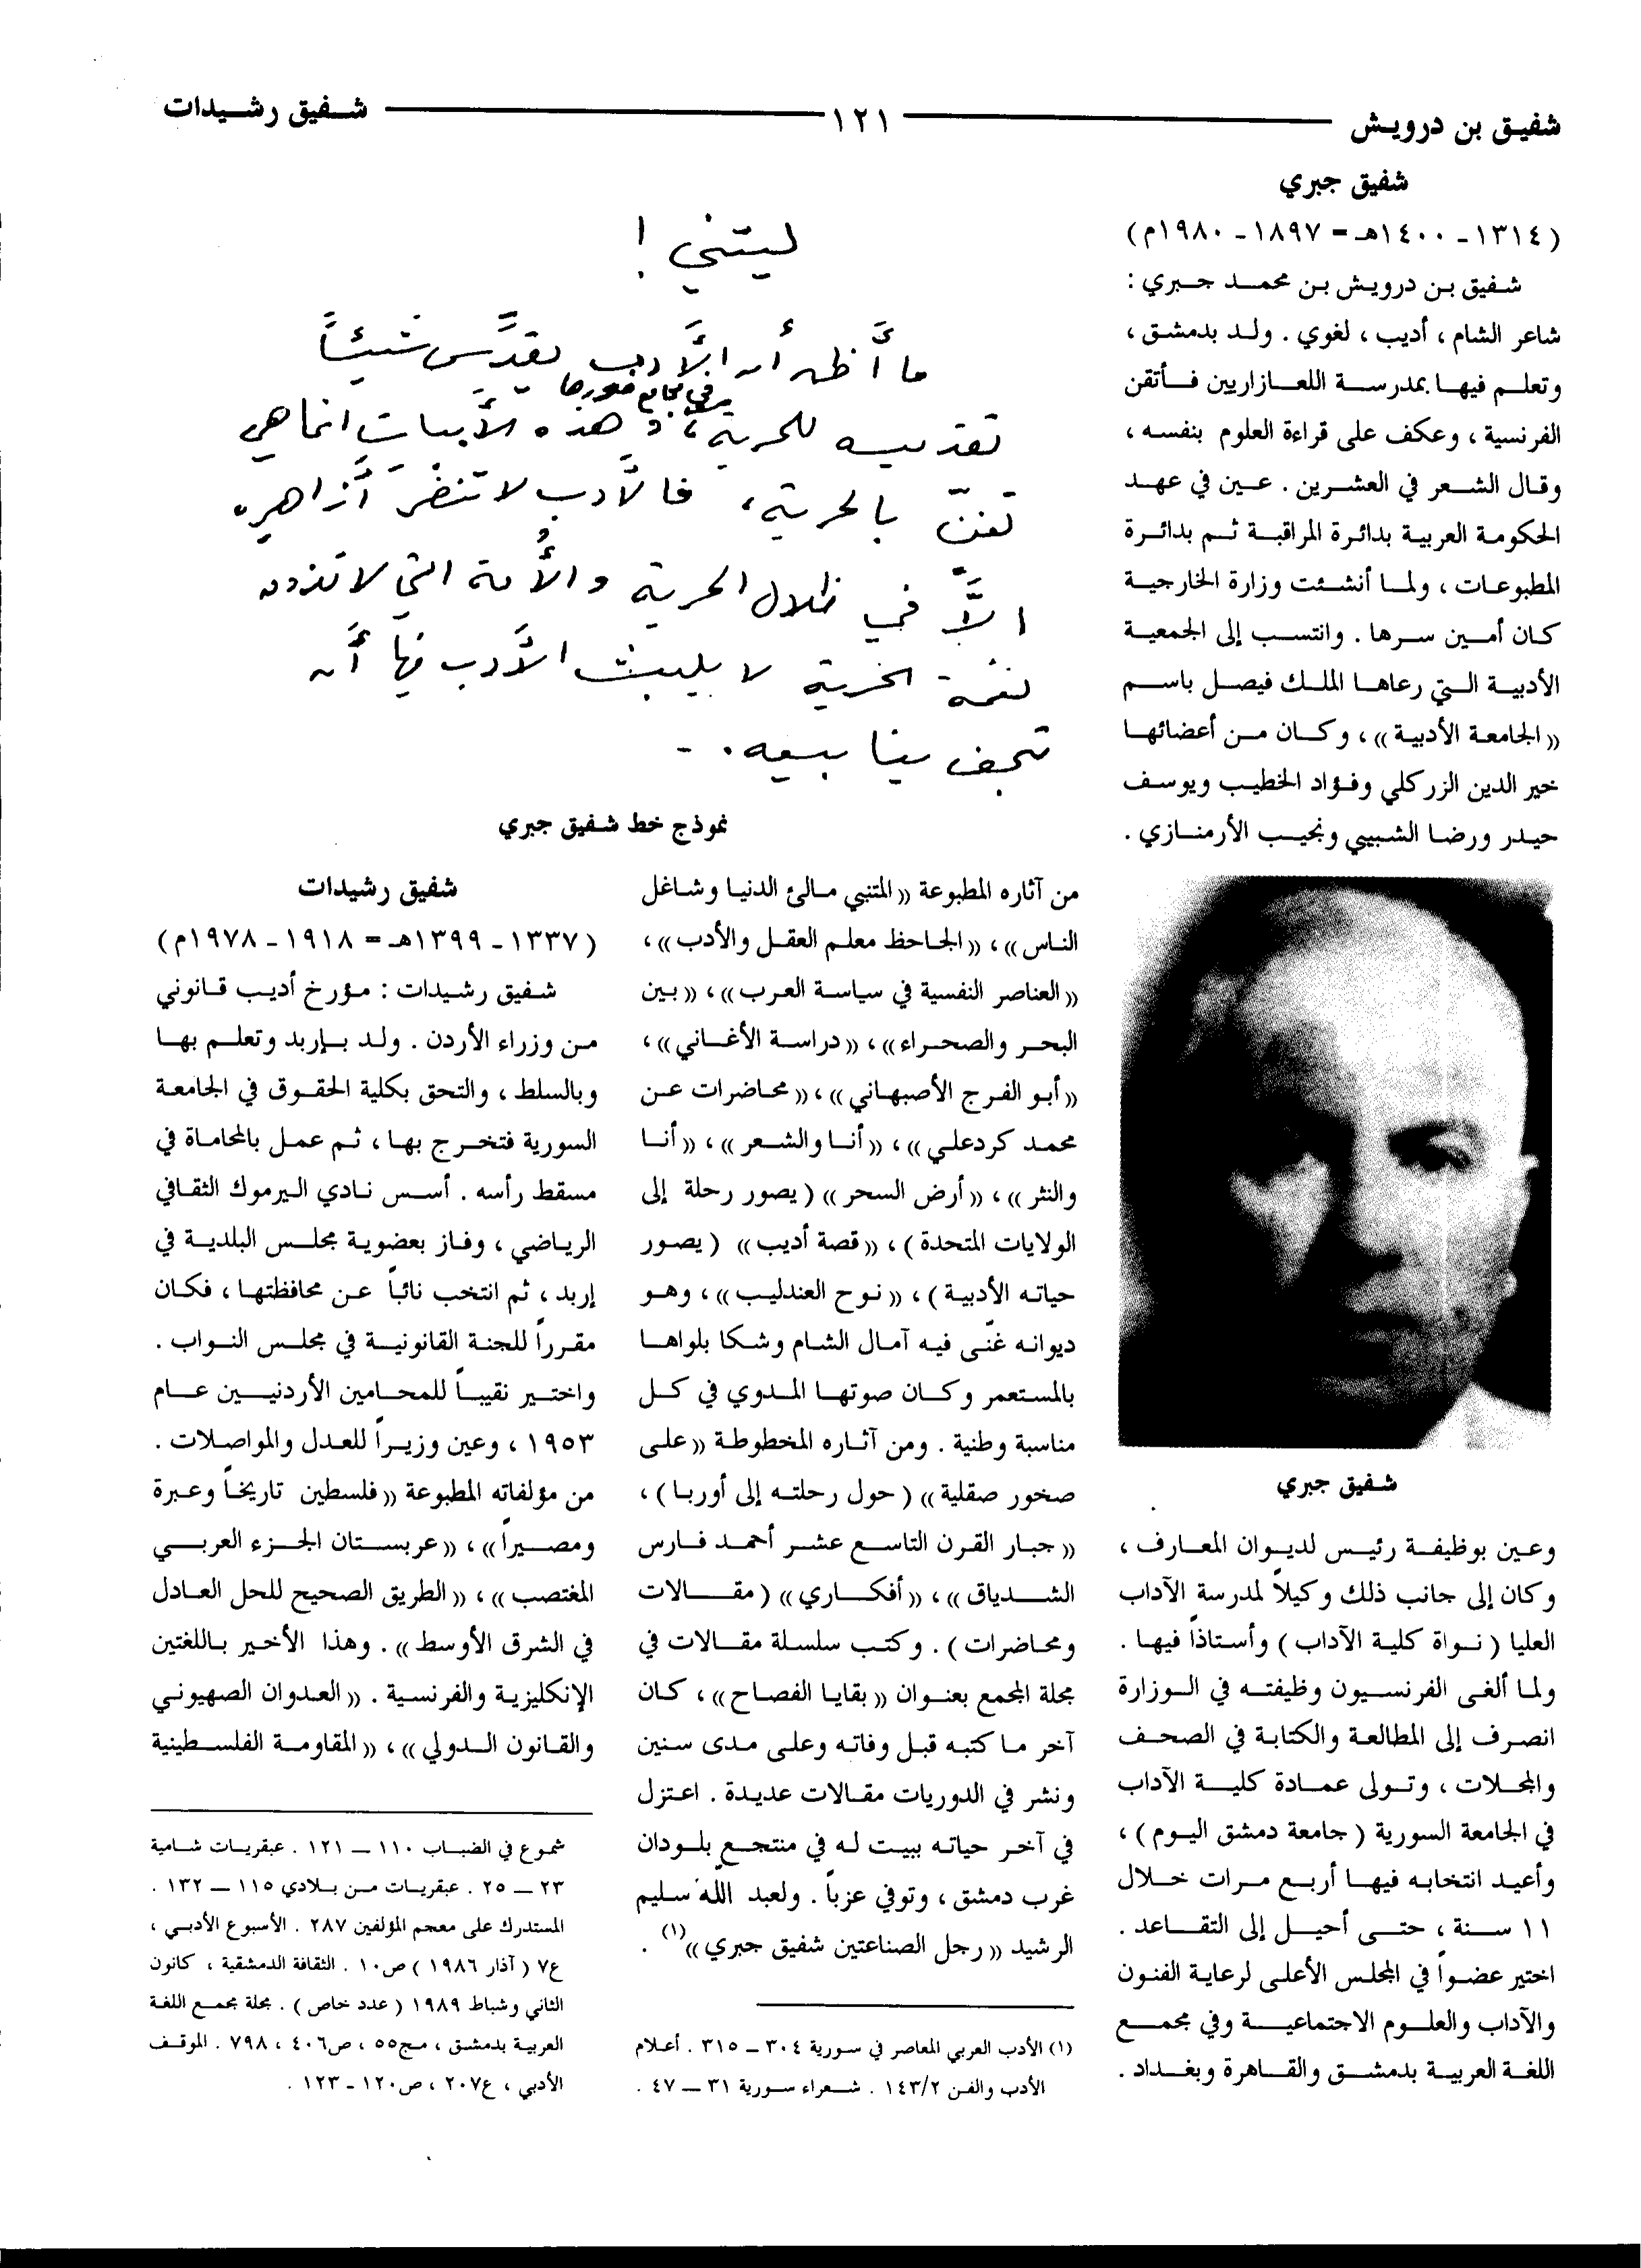 شفيق بن درويش
١٢١
شفيق رشيدات
شفيق جبري
(١٣١٤ - ١٤٠٠هـ = ١٨٩٧ - ١٩٨٠م)
شفيق بن درويش بن محمد جبري :
شاعر الشام ، أديب ، لغوي . ولد بدمشق ،
وتعلم فيها بمدرسة اللعازاريين فأتقن
الفرنسية ، وعكف على قراءة العلوم بنفسه ،
وقال الشعر في العشرين . عين في عهد
الحكومة العربية بدائرة المراقبة ثم بدائرة
المطبوعات ، ولما أنشئت وزارة الخارجية
كان أمين سرها . وانتسب إلى الجمعية
الأدبية التي رعاها الملك فيصل باسم
«الجامعة الأدبية» ، وكان من أعضائها
خير الدين الزركلي وفؤاد الخطيب ويوسف
حيدر ورضا الشبيبي ونجيب الأرمنازي .
شفيق جبري
وعين بوظيفة رئيس لديوان المعارف ،
وكان إلى جانب ذلك وكيلاً لمدرسة الآداب
العليا ( نواة كلية الآداب ) وأستاذاً فيها .
ولما ألغى الفرنسيون وظيفته في الوزارة
انصرف إلى المطالعة والكتابة في الصحف
والمجلات ، وتولى عمادة كلية الآداب
في الجامعة السورية ( جامعة دمشق اليوم ) ،
وأعيد انتخابه فيها أربع مرات خلال
١١ سنة ، حتى أحيل إلى التقاعد .
اختير عضواً في المجلس الأعلى لرعاية الفنون
والآداب والعلوم الاجتماعية وفي مجمع
اللغة العربية بدمشق والقاهرة وبغداد .
ليتني !
ما أظن أن الأدب يقدّس شيئاً
تقديسه للحرية ، وهذه الأبيات انما هي
تغنّ بالحرية ، فالأدب لا تنضر أزاهره
الاّ في ظلال الحرية والأمة التي لا تذوق
نعمة الحرية لا يلبث الأدب فيها أن
تجف ينابيعه . -
نموذج خط شفيق جبري
من آثاره المطبوعة «المتنبي مالئ الدنيا وشاغل
الناس» ، «الجاحظ معلم العقل والأدب» ،
«العناصر النفسية في سياسة العرب» ، «بين
البحر والصحراء» ، «دراسة الأغاني» ،
«أبو الفرج الأصبهاني» ، «محاضرات عن
محمد كردعلي» ، «أنا والشعر» ، «أنا
والنثر» ، «أرض السحر» ( يصور رحلة إلى
الولايات المتحدة ) ، «قصة أديب» ( يصور
حياته الأدبية ) ، «نوح العندليب» ، وهو
ديوانه غنّى فيه آمال الشام وشكا بلواها
بالمستعمر وكان صوتها المدوي في كل
مناسبة وطنية . ومن آثاره المخطوطة «على
صخور صقلية» ( حول رحلته إلى أوربا ) ،
«جبار القرن التاسع عشر أحمد فارس
الشدياق» ، «أفكاري» ( مقالات
ومحاضرات ) . وكتب سلسلة مقالات في
مجلة المجمع بعنوان «بقايا الفصاح» ، كان
آخر ما كتبه قبل وفاته وعلى مدى سنين
ونشر في الدوريات مقالات عديدة . اعتزل
في آخر حياته ببيت له في منتجع بلودان
غرب دمشق ، وتوفي عزباً . ولعبد اللّه سليم
الرشيد «رجل الصناعتين شفيق جبري»(١) .
(١) الأدب العربي المعاصر في سورية ٣٠٤ – ٣١٥ . أعلام
الأدب والفن ١٤٣/٢ . شعراء سورية ٣١ – ٤٧ .
شفيق رشيدات
(١٣٣٧ - ١٣٩٩هـ = ١٩١٨ - ١٩٧٨م)
شفيق رشيدات : مؤرخ أديب قانوني
من وزراء الأردن . ولد بإربد وتعلم بها
وبالسلط ، والتحق بكلية الحقوق في الجامعة
السورية فتخرج بها ، ثم عمل بالمحاماة في
مسقط رأسه . أسس نادي اليرموك الثقافي
الرياضي ، وفاز بعضوية مجلس البلدية في
إربد ، ثم انتخب نائباً عن محافظتها ، فكان
مقرراً للجنة القانونية في مجلس النواب .
واختير نقيباً للمحامين الأردنيين عام
١٩٥٣ ، وعين وزيراً للعدل والمواصلات .
من مؤلفاته المطبوعة «فلسطين تاريخاً وعبرة
ومصيراً» ، «عربستان الجزء العربي
المغتصب» ، «الطريق الصحيح للحل العادل
في الشرق الأوسط» . وهذا الأخير باللغتين
الإنكليزية والفرنسية . «العدوان الصهيوني
والقانون الدولي» ، «المقاومة الفلسطينية
شموع في الضباب ١١٠ – ١٢١ . عبقريات شامية
٢٣ – ٢٥ . عبقريات من بلادي ١١٥ – ١٣٢ .
المستدرك على معجم المؤلفين ٢٨٧ . الأسبوع الأدبي ،
ع٧ ( آذار ١٩٨٦ ) ص١٠ . الثقافة الدمشقية ، كانون
الثاني وشباط ١٩٨٩ ( عدد خاص ) . مجلة مجمع اللغة
العربية بدمشق ، مج٥٥ ، ص٤٠٦ ، ٧٩٨ . الموقف
الأدبي ، ع٢٠٧ ، ص١٢٠ - ١٢٣ .